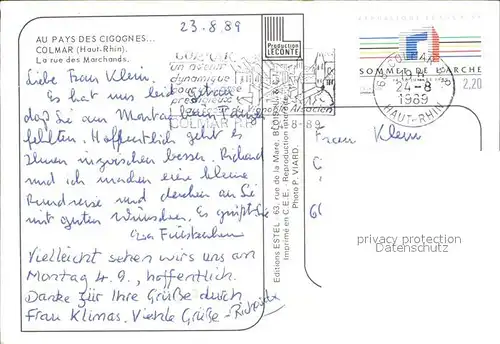 23.8.89
AU PAYS DES CIGOGNES...
COLMAR (Haut-Rhin).
La rue des Marchands.
Liebe Frau Klein.
Es hat uns leid getan
daß Sie am Montag beim Tanzen
fehlten. Hoffentlich geht es
Ihnen inzwischen besser. Richard
und ich machen eine kleine
Rundreise und denken an Sie
mit guten Wünschen. Es grüßt Sie
Vielleicht sehen wir uns am
Montag 4.9., hoffentlich.
Danke für Ihre Grüße durch
Frau Klimas. Viele Grüße - Richard
Production
LECONTE
Editions ESTEL - 63, rue de la Mare,
Imprimé en C.E.E. - Reproduction interdite
Photo P. VIARD.
un
dynamique
COLMAR
8-89
SOMMET DE L'ARCHE
2,20
COLMAR
24-8
1989
HAUT-RHIN
Frau Klein
privacy protection
Datenschutz